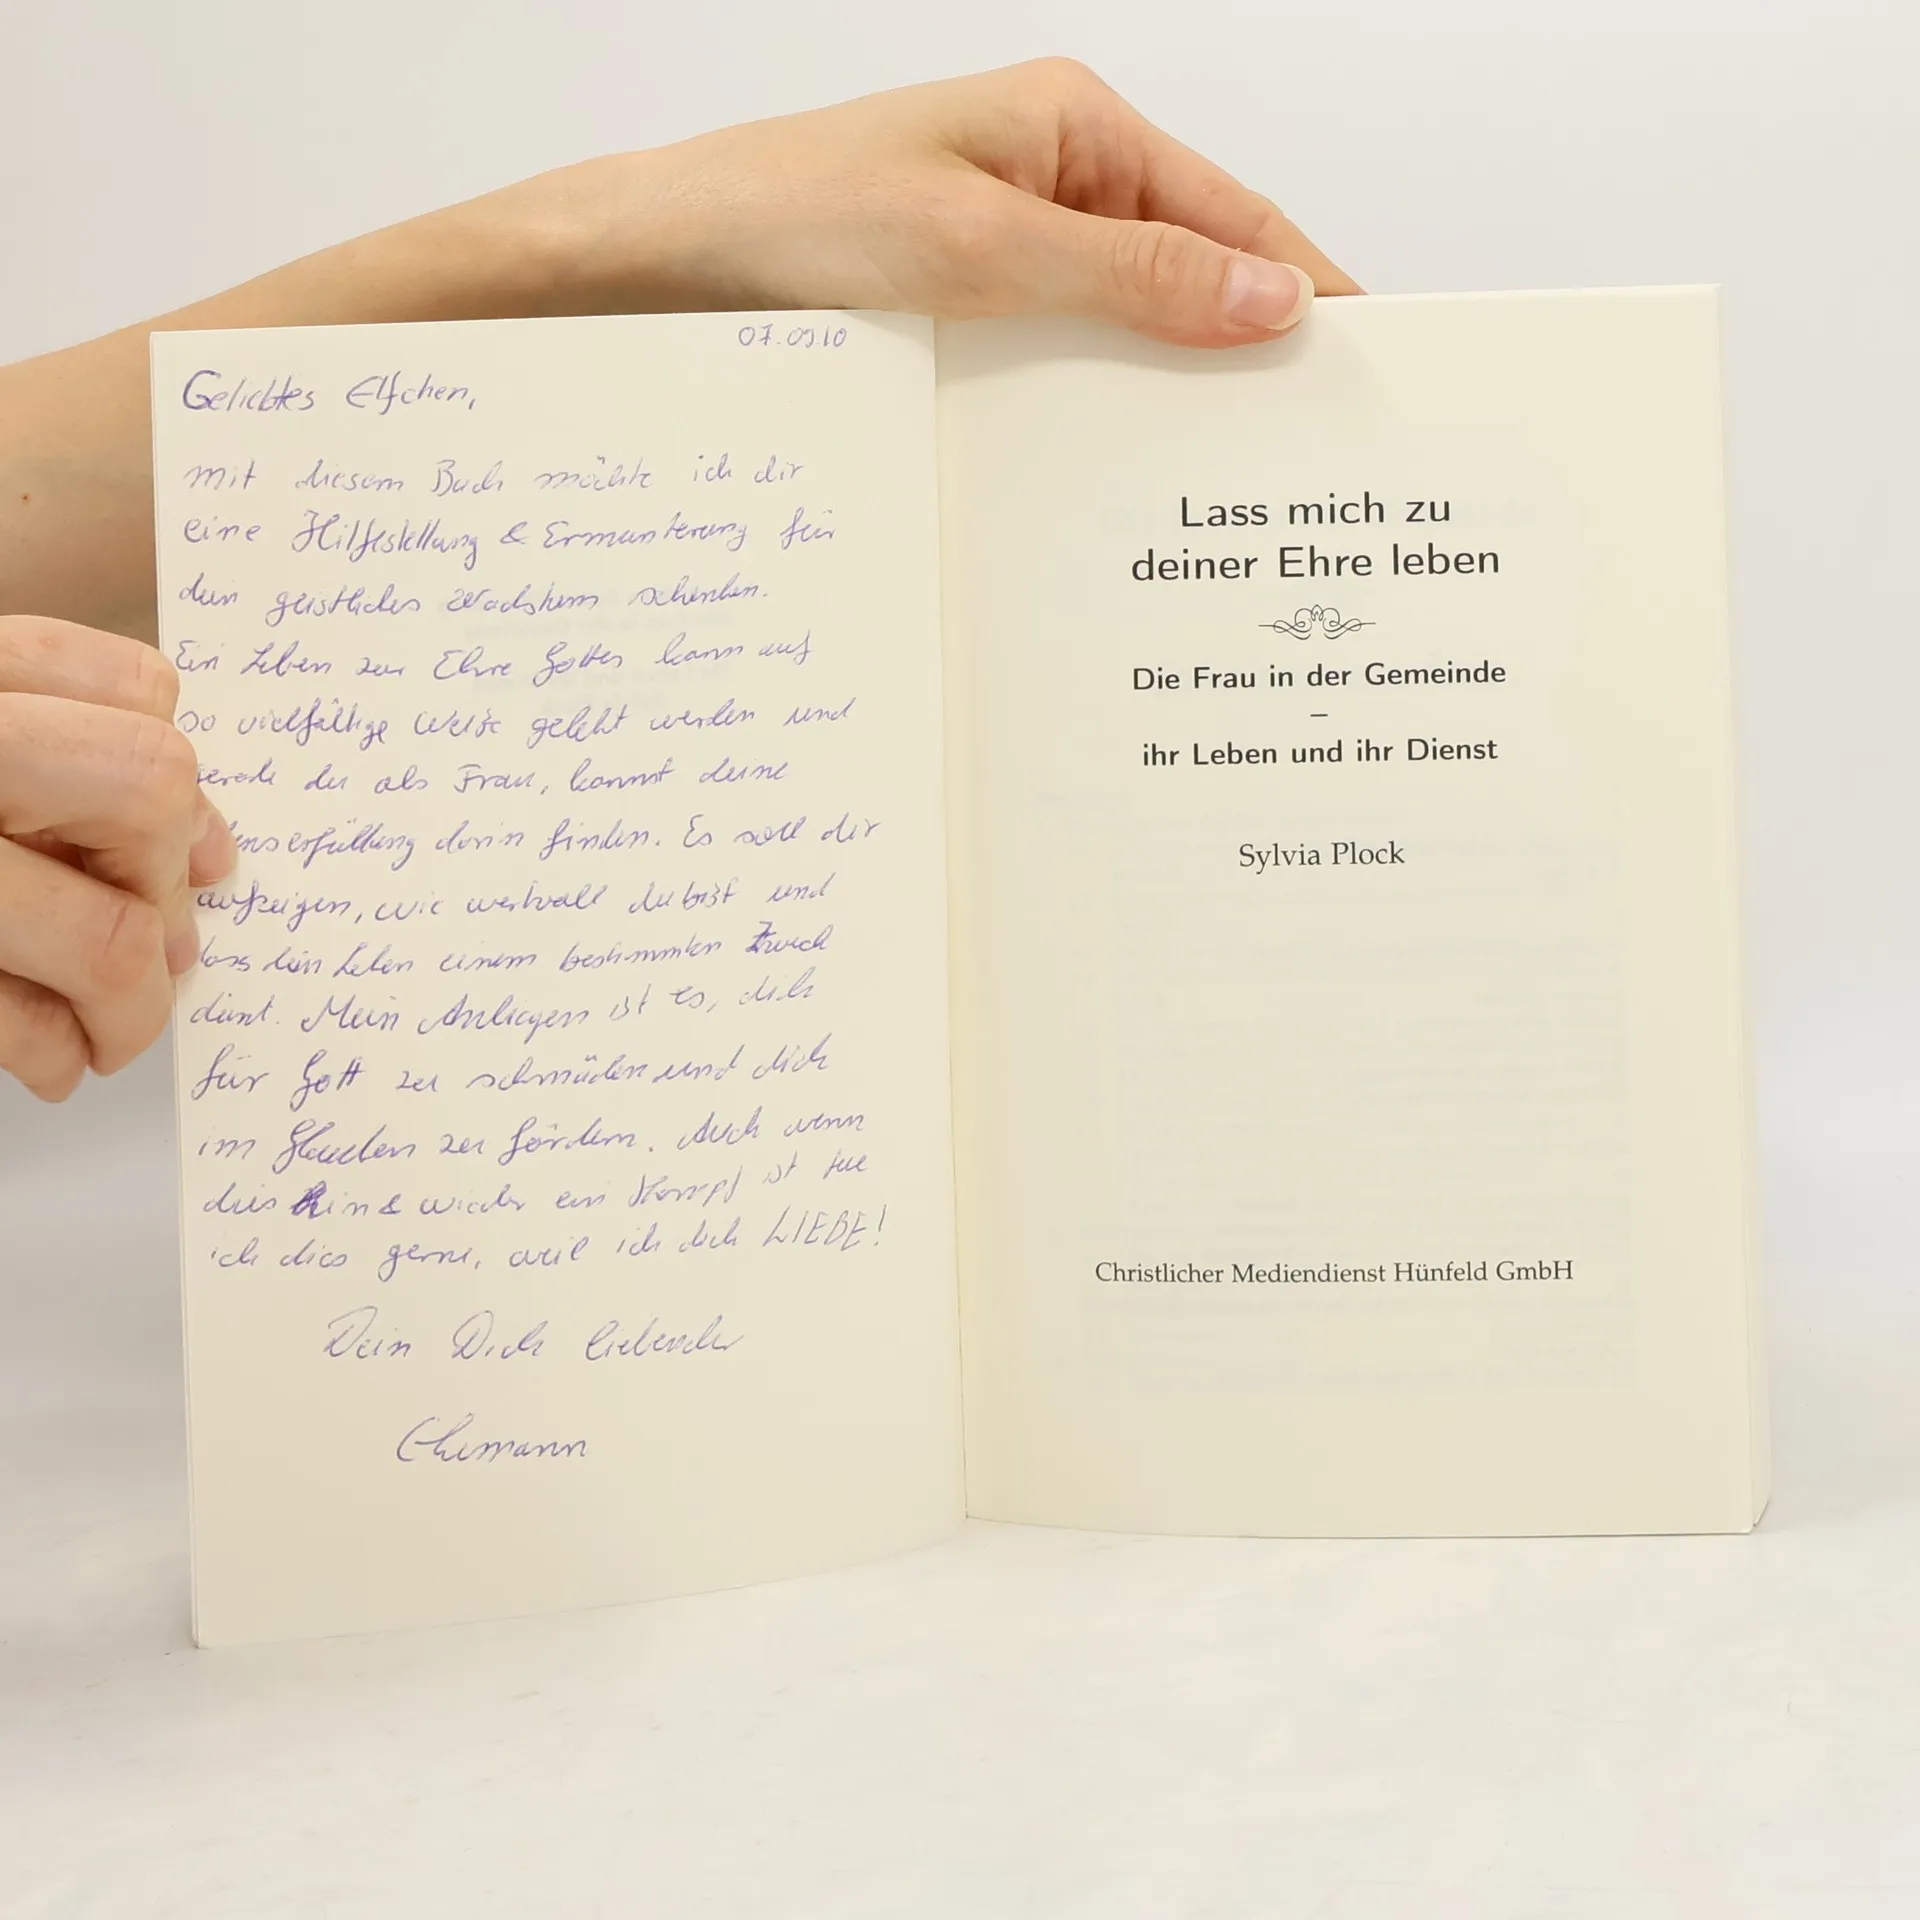 07.09.10
Geliebtes Elfchen,
mit diesem Buch möchte ich dir
eine Hilfestellung & Ermunterung für
dein geistliches Wachstum schenken.
Ein Leben zur Ehre Gottes kann auf
so vielfältige Weise gelebt werden und
gerade du als Frau, kannst deine
enserfüllung darin finden. Es soll dir
aufzeigen, wie wertvoll du bist und
dass dein Leben einem bestimmten Zweck
dient. Mein Anliegen ist es, dich
für Gott zu schmücken und dich
im Glauben zu fördern. Auch wenn
dies hin & wieder ein Kampf ist tue
ich dies gerne, weil ich dich LIEBE!
Dein Dich liebender
Ehemann
Lass mich zu
deiner Ehre leben
Die Frau in der Gemeinde
–
ihr Leben und ihr Dienst
Sylvia Plock
Christlicher Mediendienst Hünfeld GmbH